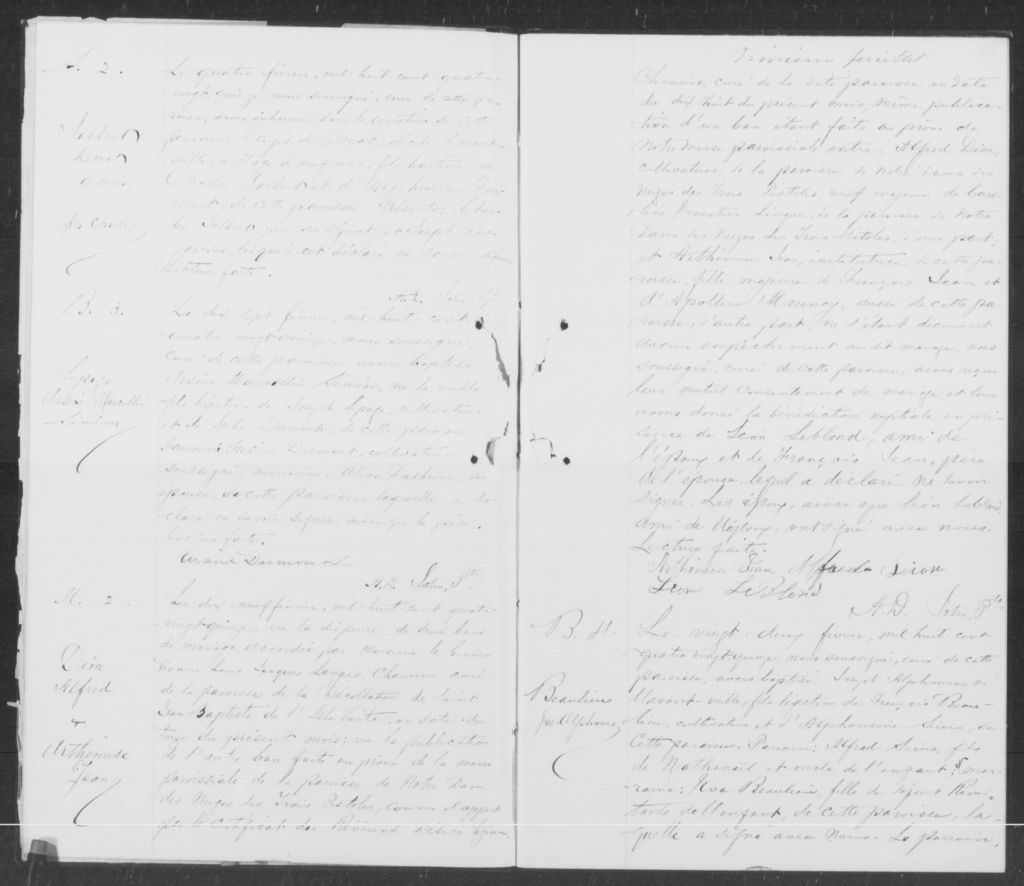 A. 2.
Le quatre février, mil huit cent quatre
vingt quinze, nous soussigné, curé de cette pa-
roisse, avons inhumé, dans le cimetière de cette
paroisse, le corps de décédé l'avant
veille, à l'âge de neuf mois, fils légitime de
Charles et d'Alphonsine Du-
mont de cette paroisse. Présents: Char-
les père du défunt, et Joseph
lesquels ont déclaré ne savoir signer
Lecture faite.
fils Charles
A. D. Ptre
B. 3.
Le dix sept février, mil huit cent
quatre vingt quinze, nous soussigné,
curé de cette paroisse, avons baptisé
Arsène Marcellin Siméon, né la veille
fils légitime de Joseph Lepage, cultivateur
et de Julie Dumont, de cette paroisse.
Parrain: Dumont, cultivateur
soussigné, marraine: Alice son
épouse, de cette paroisse, laquelle a dé-
claré ne savoir signer, ainsi que le père.
Lecture faite.
Lepage
Arsène Marcellin
Siméon
Arsène Dumond
A. D. Ptre
M. 2.
Le dix-neuf février, mil huit cent quatre
vingt quinze, vu la dispense de deux bans
de mariage accordée par Monsieur le grand
vicaire Louis Jacques Langis, Chanoine, curé
de la paroisse de la Décollation de Saint
Jean Baptiste de l'Isle Verte, en date du
du présent mois; vu la publication
de l'autre ban faite au prône de la messe
paroissiale de la paroisse de Notre Dame
des Neiges des Trois Pistoles, comme il appert
par le Certificat du Révérend Désiré
Dion
Alfred
&
Arthémise
Jean
feuillet
Chanoine, curé de la dite paroisse en date
du dix huit du présent mois, même publica-
tion d'un ban étant faite au prône de
Notre Messe paroissiale entre: Alfred Dion,
cultivateur de la paroisse de Notre Dame des
Neiges des Trois-Pistoles, veuf majeur de
Ernestine Lévêque, de la paroisse de Notre
Dame des Neiges des Trois-Pistoles, d'une part;
et Arthémise Jean, institutrice, de cette pa-
roisse, fille majeure de François Jean et
d'Apolline Morency, aussi de cette pa-
roisse, d'autre part; ne s'étant découvert
aucun empêchement au dit mariage, nous
soussigné, curé de cette paroisse, avons reçu
leur mutuel consentement de mariage et leur
avons donné la bénédiction nuptiale en pré-
sence de Léon Leblond, ami de
l'époux et de François Jean, père
de l'épouse, lequel a déclaré ne savoir
signer. Les époux, ainsi que Léon Leblond,
ami de l'époux, ont signé avec nous.
Lecture faite.
Arthémise Jean Alfred Dion
Léon LeBlond
A. D. Ptre
B. 4.
Le vingt-deux février, mil huit cent
quatre vingt quinze, nous soussigné, curé de cette
paroisse, avons baptisé Joseph Alphonse, né
l'avant-veille, fils légitime de François Beau-
lieu, cultivateur et d'Alphonsine de
cette paroisse. Parrain: Alfred fils
de Nathanaël et oncle de l'enfant; mar-
raine: Eva Beaulieu, fille de défunt
tante de l'enfant, de cette paroisse, la-
quelle a signé avec Nous. Le parrain,
Beaulieu
Jos. Alphonse